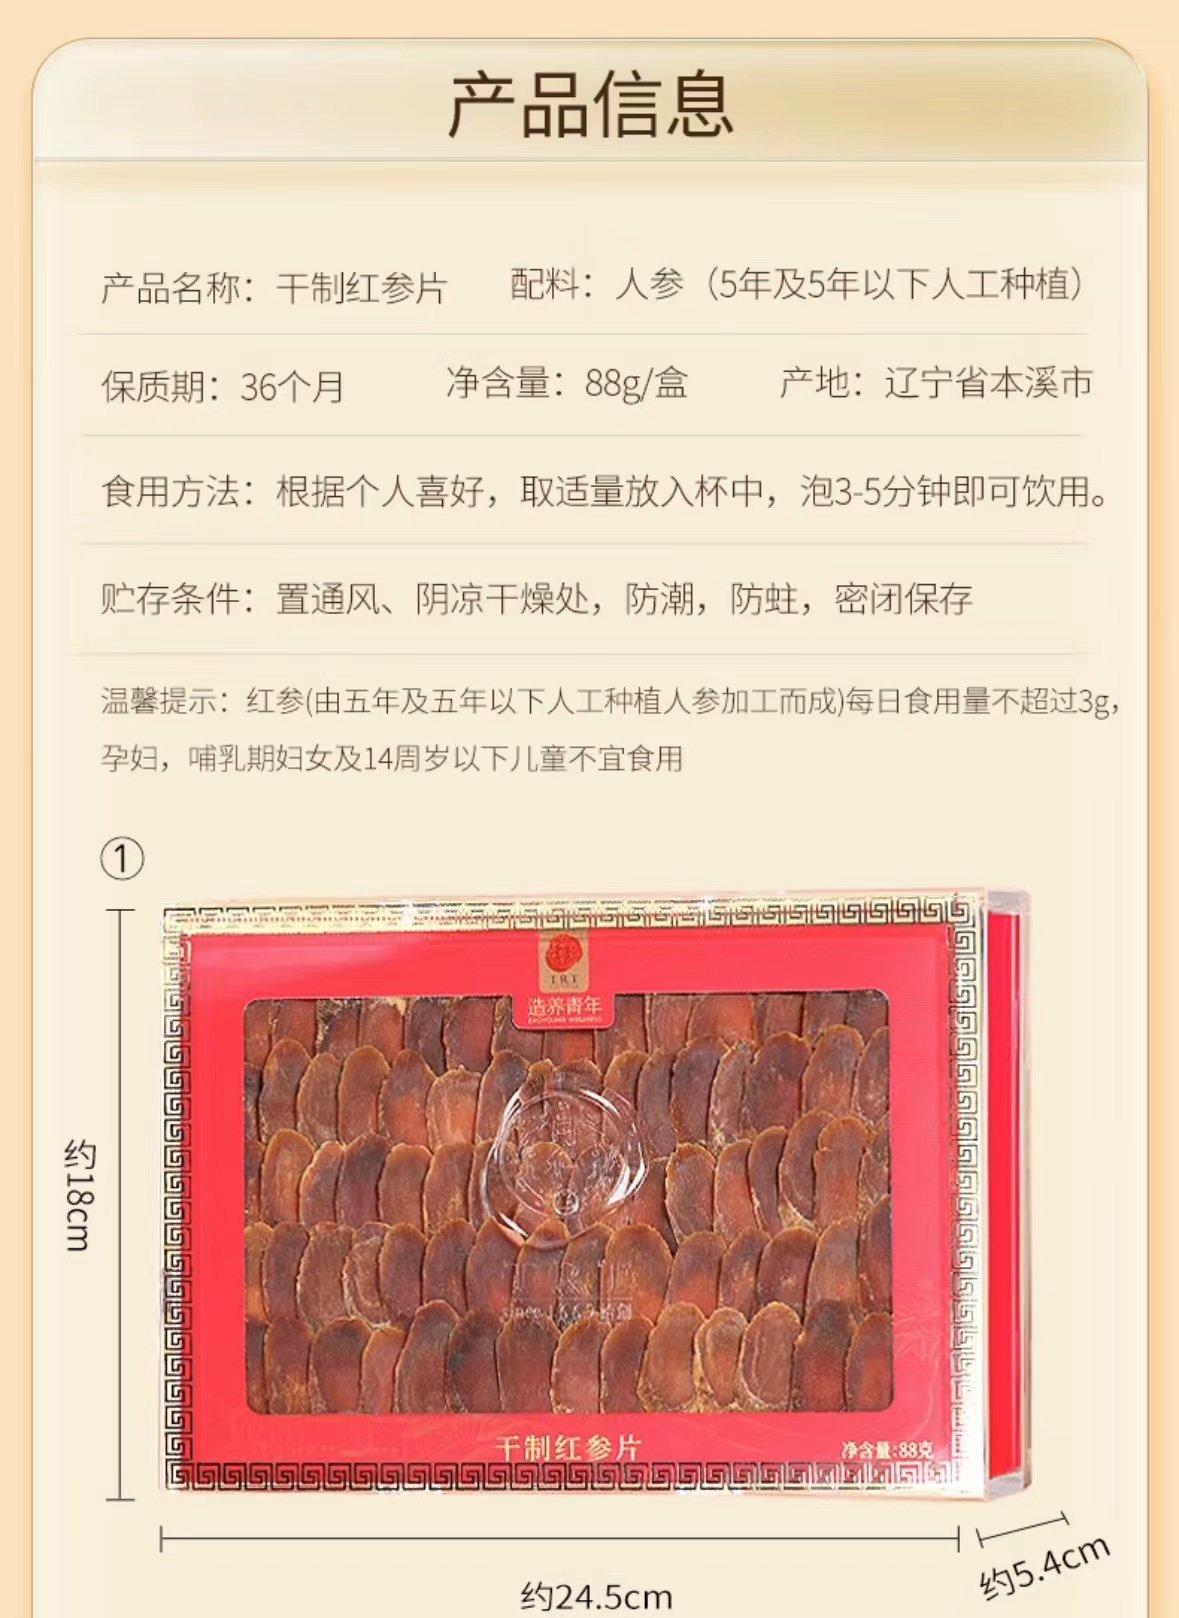 产品信息
产品名称：干制红参片 配料：人参（5年及5年以下人工种植）
保质期：36个月 净含量：88g/盒 产地：辽宁省本溪市
食用方法：根据个人喜好，取适量放入杯中，泡3-5分钟即可饮用。
贮存条件：置通风、阴凉干燥处，防潮，防蛀，密闭保存
温馨提示：红参(由五年及五年以下人工种植人参加工而成)每日食用量不超过3g，
孕妇，哺乳期妇女及14周岁以下儿童不宜食用
①
TRT
造养青年
约18cm
since 1669 始创
干制红参片
净含量:88克
约5.4cm
约24.5cm